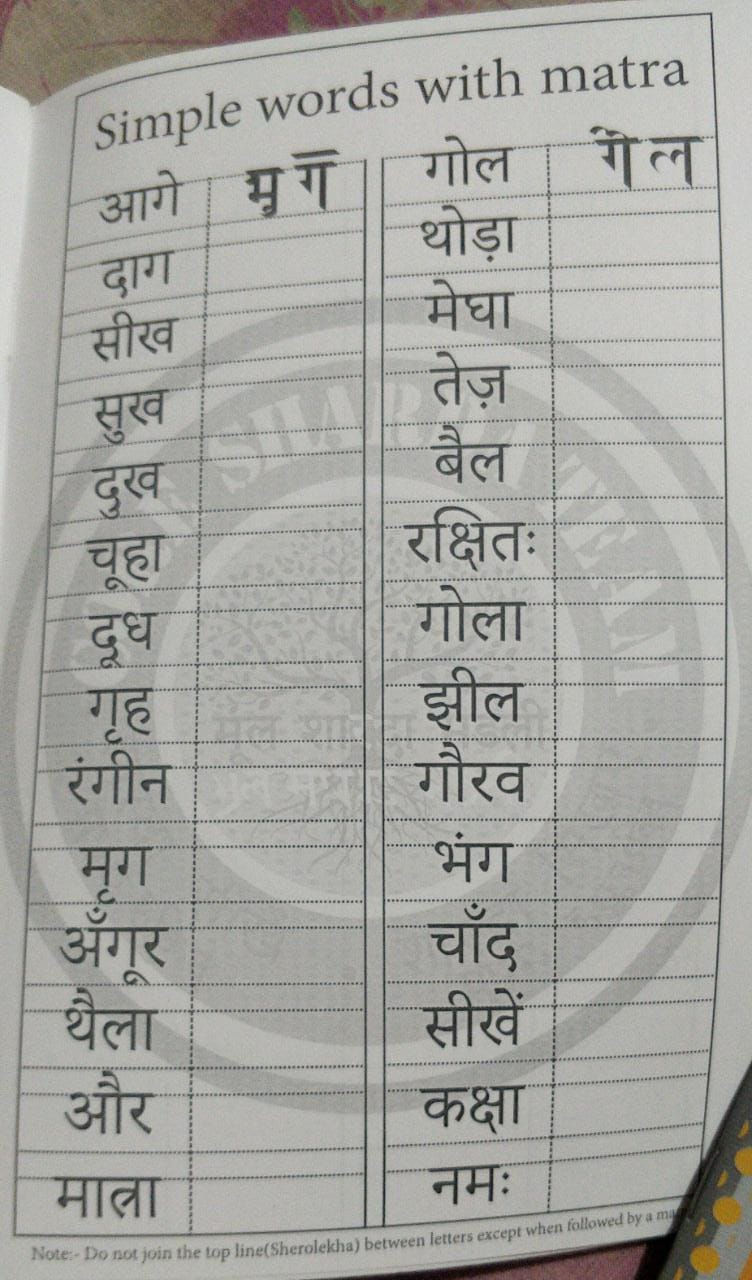 Simple words with matra
आगे मृ ग
दाग
सीख
सुख
दुख
चूहा
दूध
गृह
रंगीन
मृग
अँगूर
थैला
और
मात्रा
गोल गे ल
थोड़ा
मेघा
तेज़
बैल
रक्षितः
गोला
झील
गौरव
भंग
चाँद
सीखें
कक्षा
नमः
Note:- Do not join the top line(Sherolekha) between letters except when followed by a